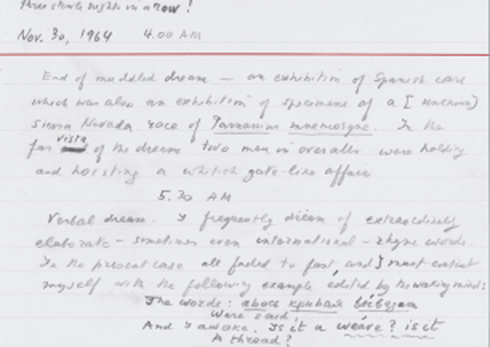 three starlit nights in a row!
Nov. 30, 1964 4.00 AM
End of muddled dream — an exhibition of Spanish
which was also an exhibition of specimens of a [unknown)
Sierra Nevada race of Parnassius mnemosyne. In the
far vista of the dream two men in overalls were holding
and hoisting a whitish gate-like affair
5.30 AM
Verbal dream. I frequently dream of extraordinarily
elaborate — sometimes even international — rhyme words.
In the present case all faded too fast, and I must content
myself with the following example edited by the waking mind:
The words: авось кривая
Were said
And I awoke. Is it a weave? is it
A thread?